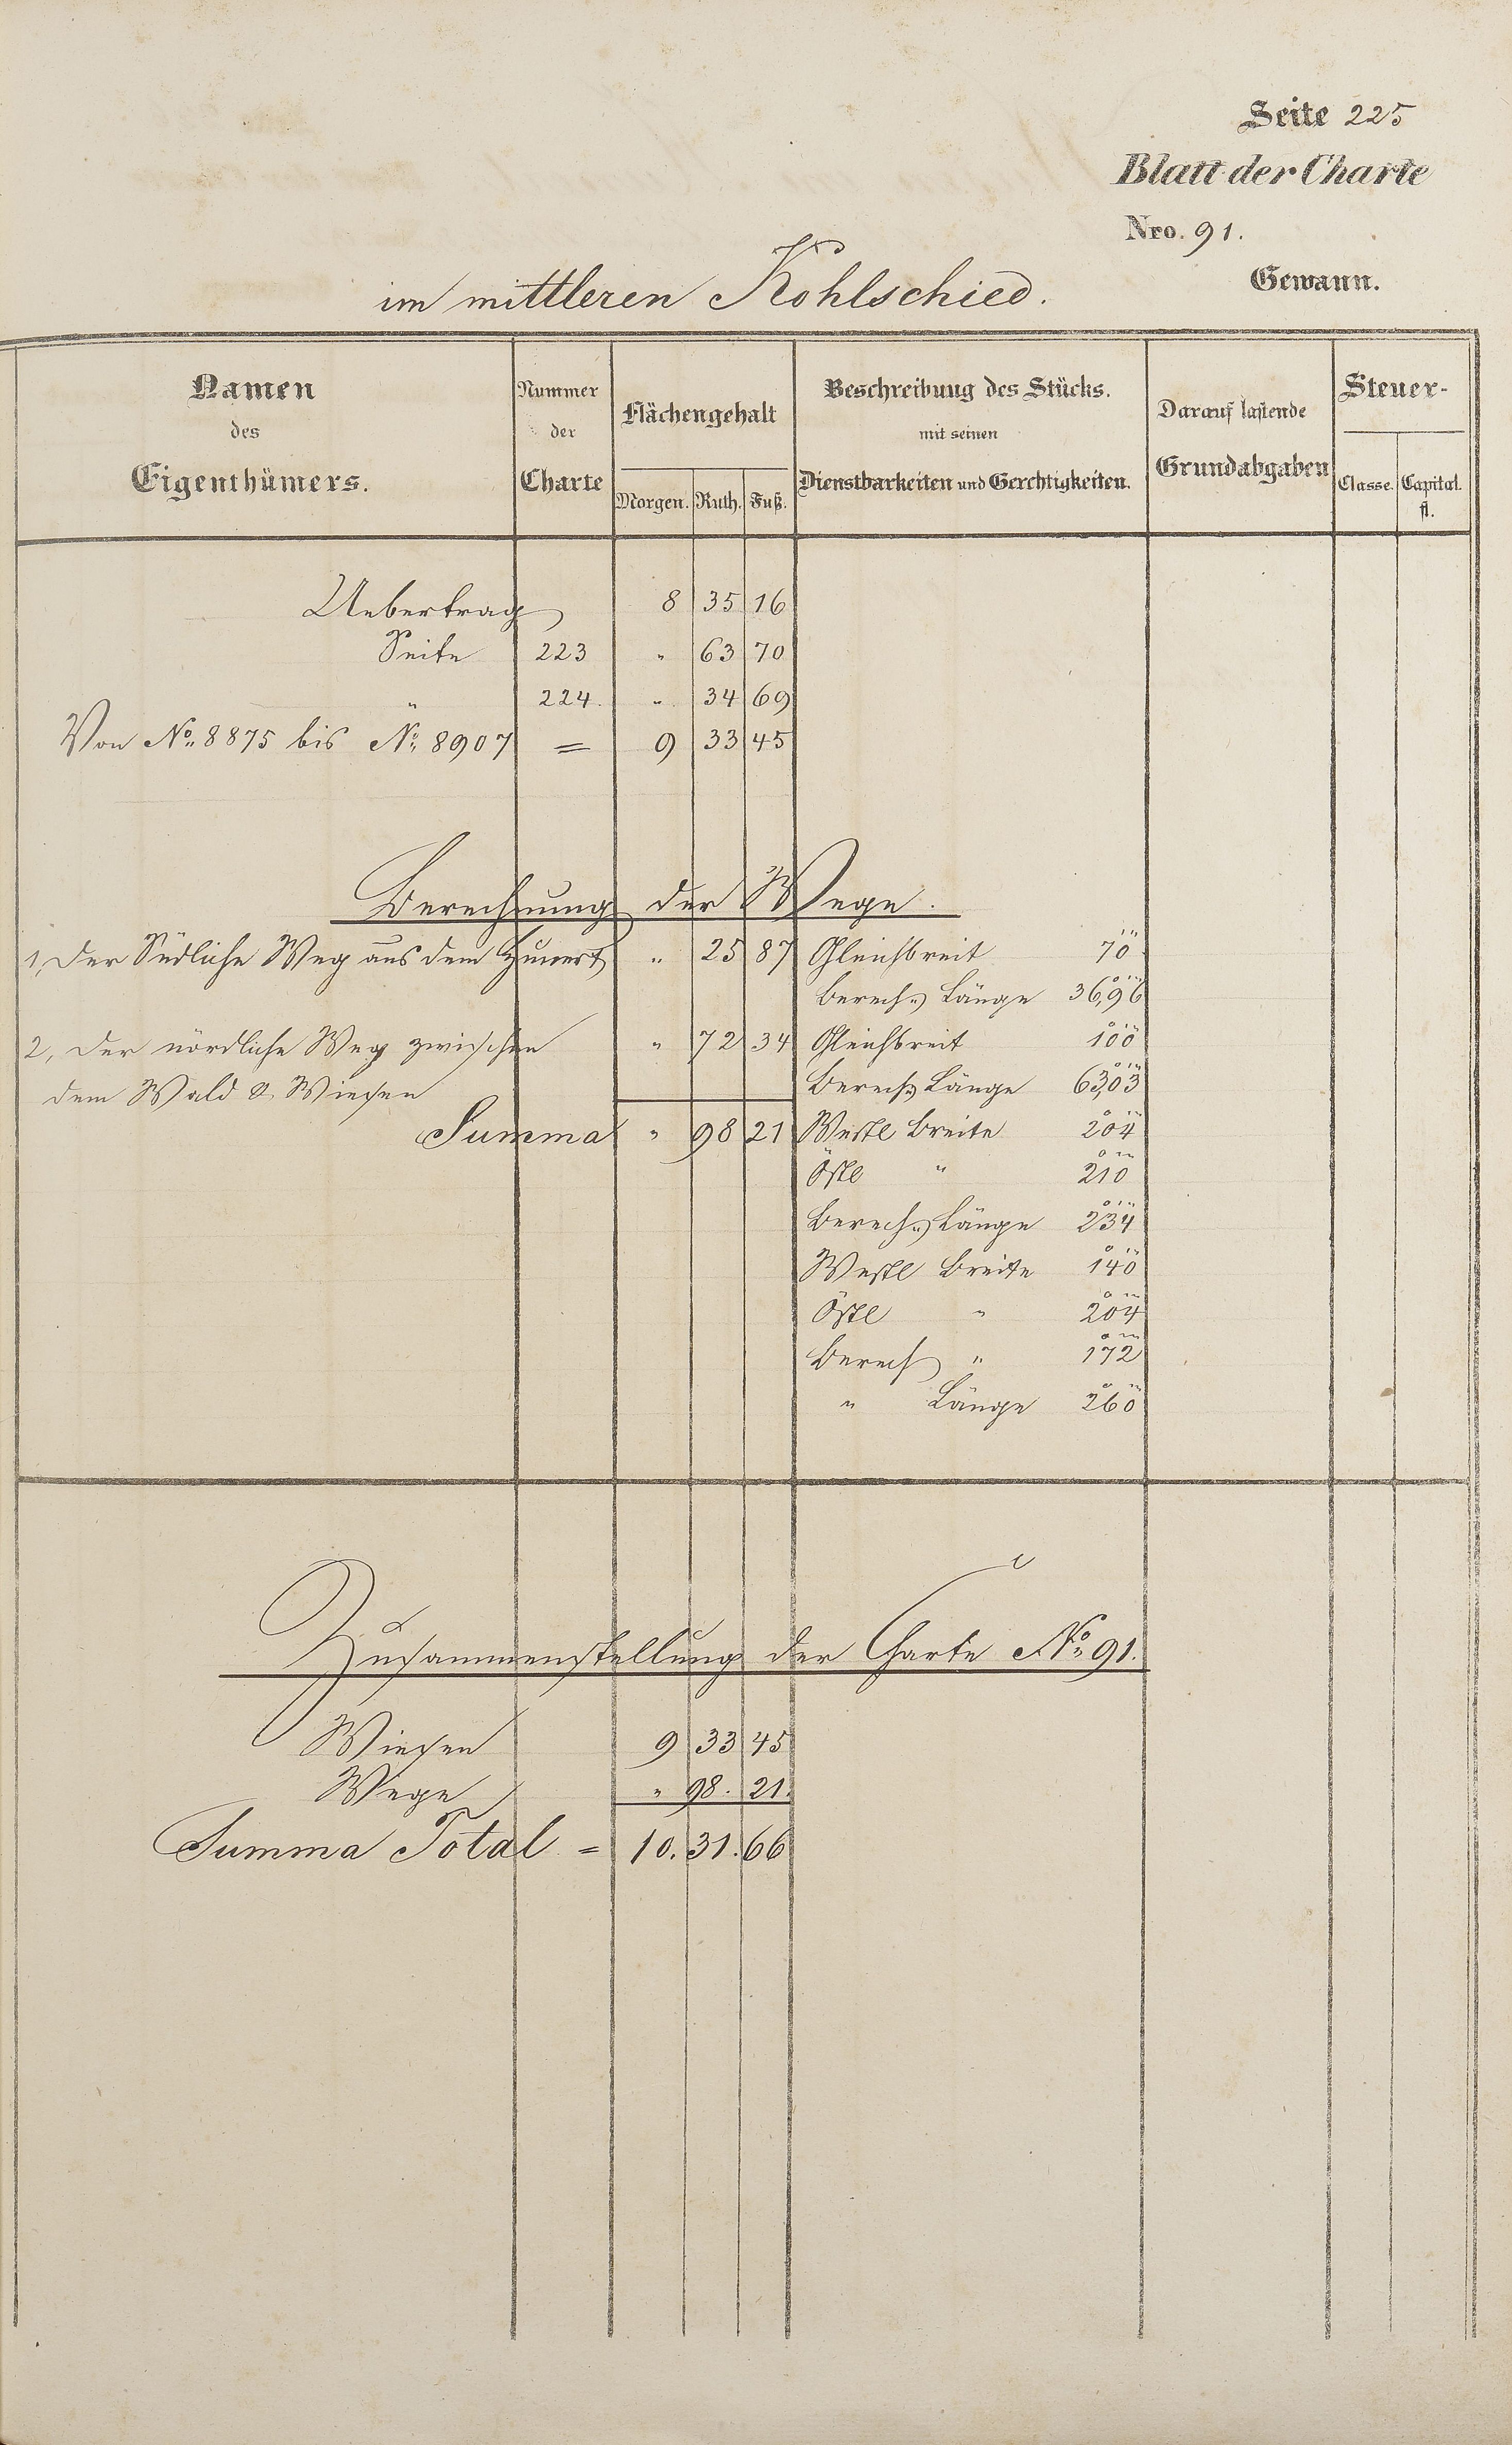 Seite 225
Blatt der Charte
Nro. 91.
Gewann.
im mittleren Kohlschied.
Namen des Eigenthümers.
Nummer der Charte
Flächengehalt
Morgen. Ruth. Fuß.
Beschreibung des Stücks. mit seinen Dienstbarkeiten und Gerechtigkeiten.
Darauf lastende Grundabgaben
Steuer-
Classe. Capital. fl.
Uebertrag 8 35 16
Seite 223 " 63 70
" 224. " 34 69
Von No. 8875 bis No. 8907 = 9 33 45
Berechnung der Wege.
1, Der Südliche Weg aus dem " 25 87 Gleichbreit 70
Berech. Länge 36,96
2, Der nördliche Weg zwischen " 72 34 Gleichbreit 100
dem Wald & Wiesen Berech. Länge 63,03
Summa " 98 21 Westl Breite 204
Östl " 210
Berech. Länge 234
Westl Breite 140
Östl " 204
Berech " 172
" Länge 260
Zusammenstellung der Charte No. 91.
Wiesen 9 33 45
Wege " 98. 21.
Summa Total = 10. 31. 66